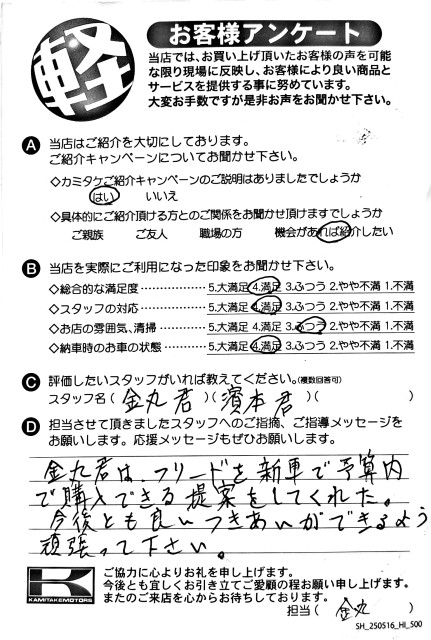 軽
お客様アンケート
当店では、お買い上げ頂いたお客様の声を可能
な限り現場に反映し、お客様により良い商品と
サービスを提供する事に努めています。
大変お手数ですが是非お声をお聞かせ下さい。
A 当店はご紹介を大切にしております。
ご紹介キャンペーンについてお聞かせ下さい。
◇カミタケご紹介キャンペーンのご説明はありましたでしょうか
はい いいえ
◇具体的にご紹介頂ける方とのご関係をお聞かせ頂けますでしょうか
ご親族 ご友人 職場の方 機会があれば紹介したい
B 当店を実際にご利用になった印象をお聞かせ下さい。
◇総合的な満足度 ……………… 5.大満足 4.満足 3.ふつう 2.やや不満 1.不満
◇スタッフの対応 ……………… 5.大満足 4.満足 3.ふつう 2.やや不満 1.不満
◇お店の雰囲気、清掃 ………… 5.大満足 4.満足 3.ふつう 2.やや不満 1.不満
◇納車時のお車の状態 ………… 5.大満足 4.満足 3.ふつう 2.やや不満 1.不満
C 評価したいスタッフがいれば教えてください。(複数回答可)
スタッフ名 ( 金丸君 ) ( 濱本君 ) ( )
D 担当させて頂きましたスタッフへのご指摘、ご指導メッセージを
お願いします。応援メッセージもぜひお願いします。
金丸君は、フリードを新車で予算内
で購入できる提案をしてくれた。
今後とも良いつきあいができるよう
頑張って下さい。
KAMITAKE MOTORS
ご協力に心よりお礼を申し上げます。
今後とも宜しくお引き立てご愛顧の程お願い申し上げます。
またのご来店を心からお待ちしております。
担当 ( 金丸 )
SH_250516_HI_500